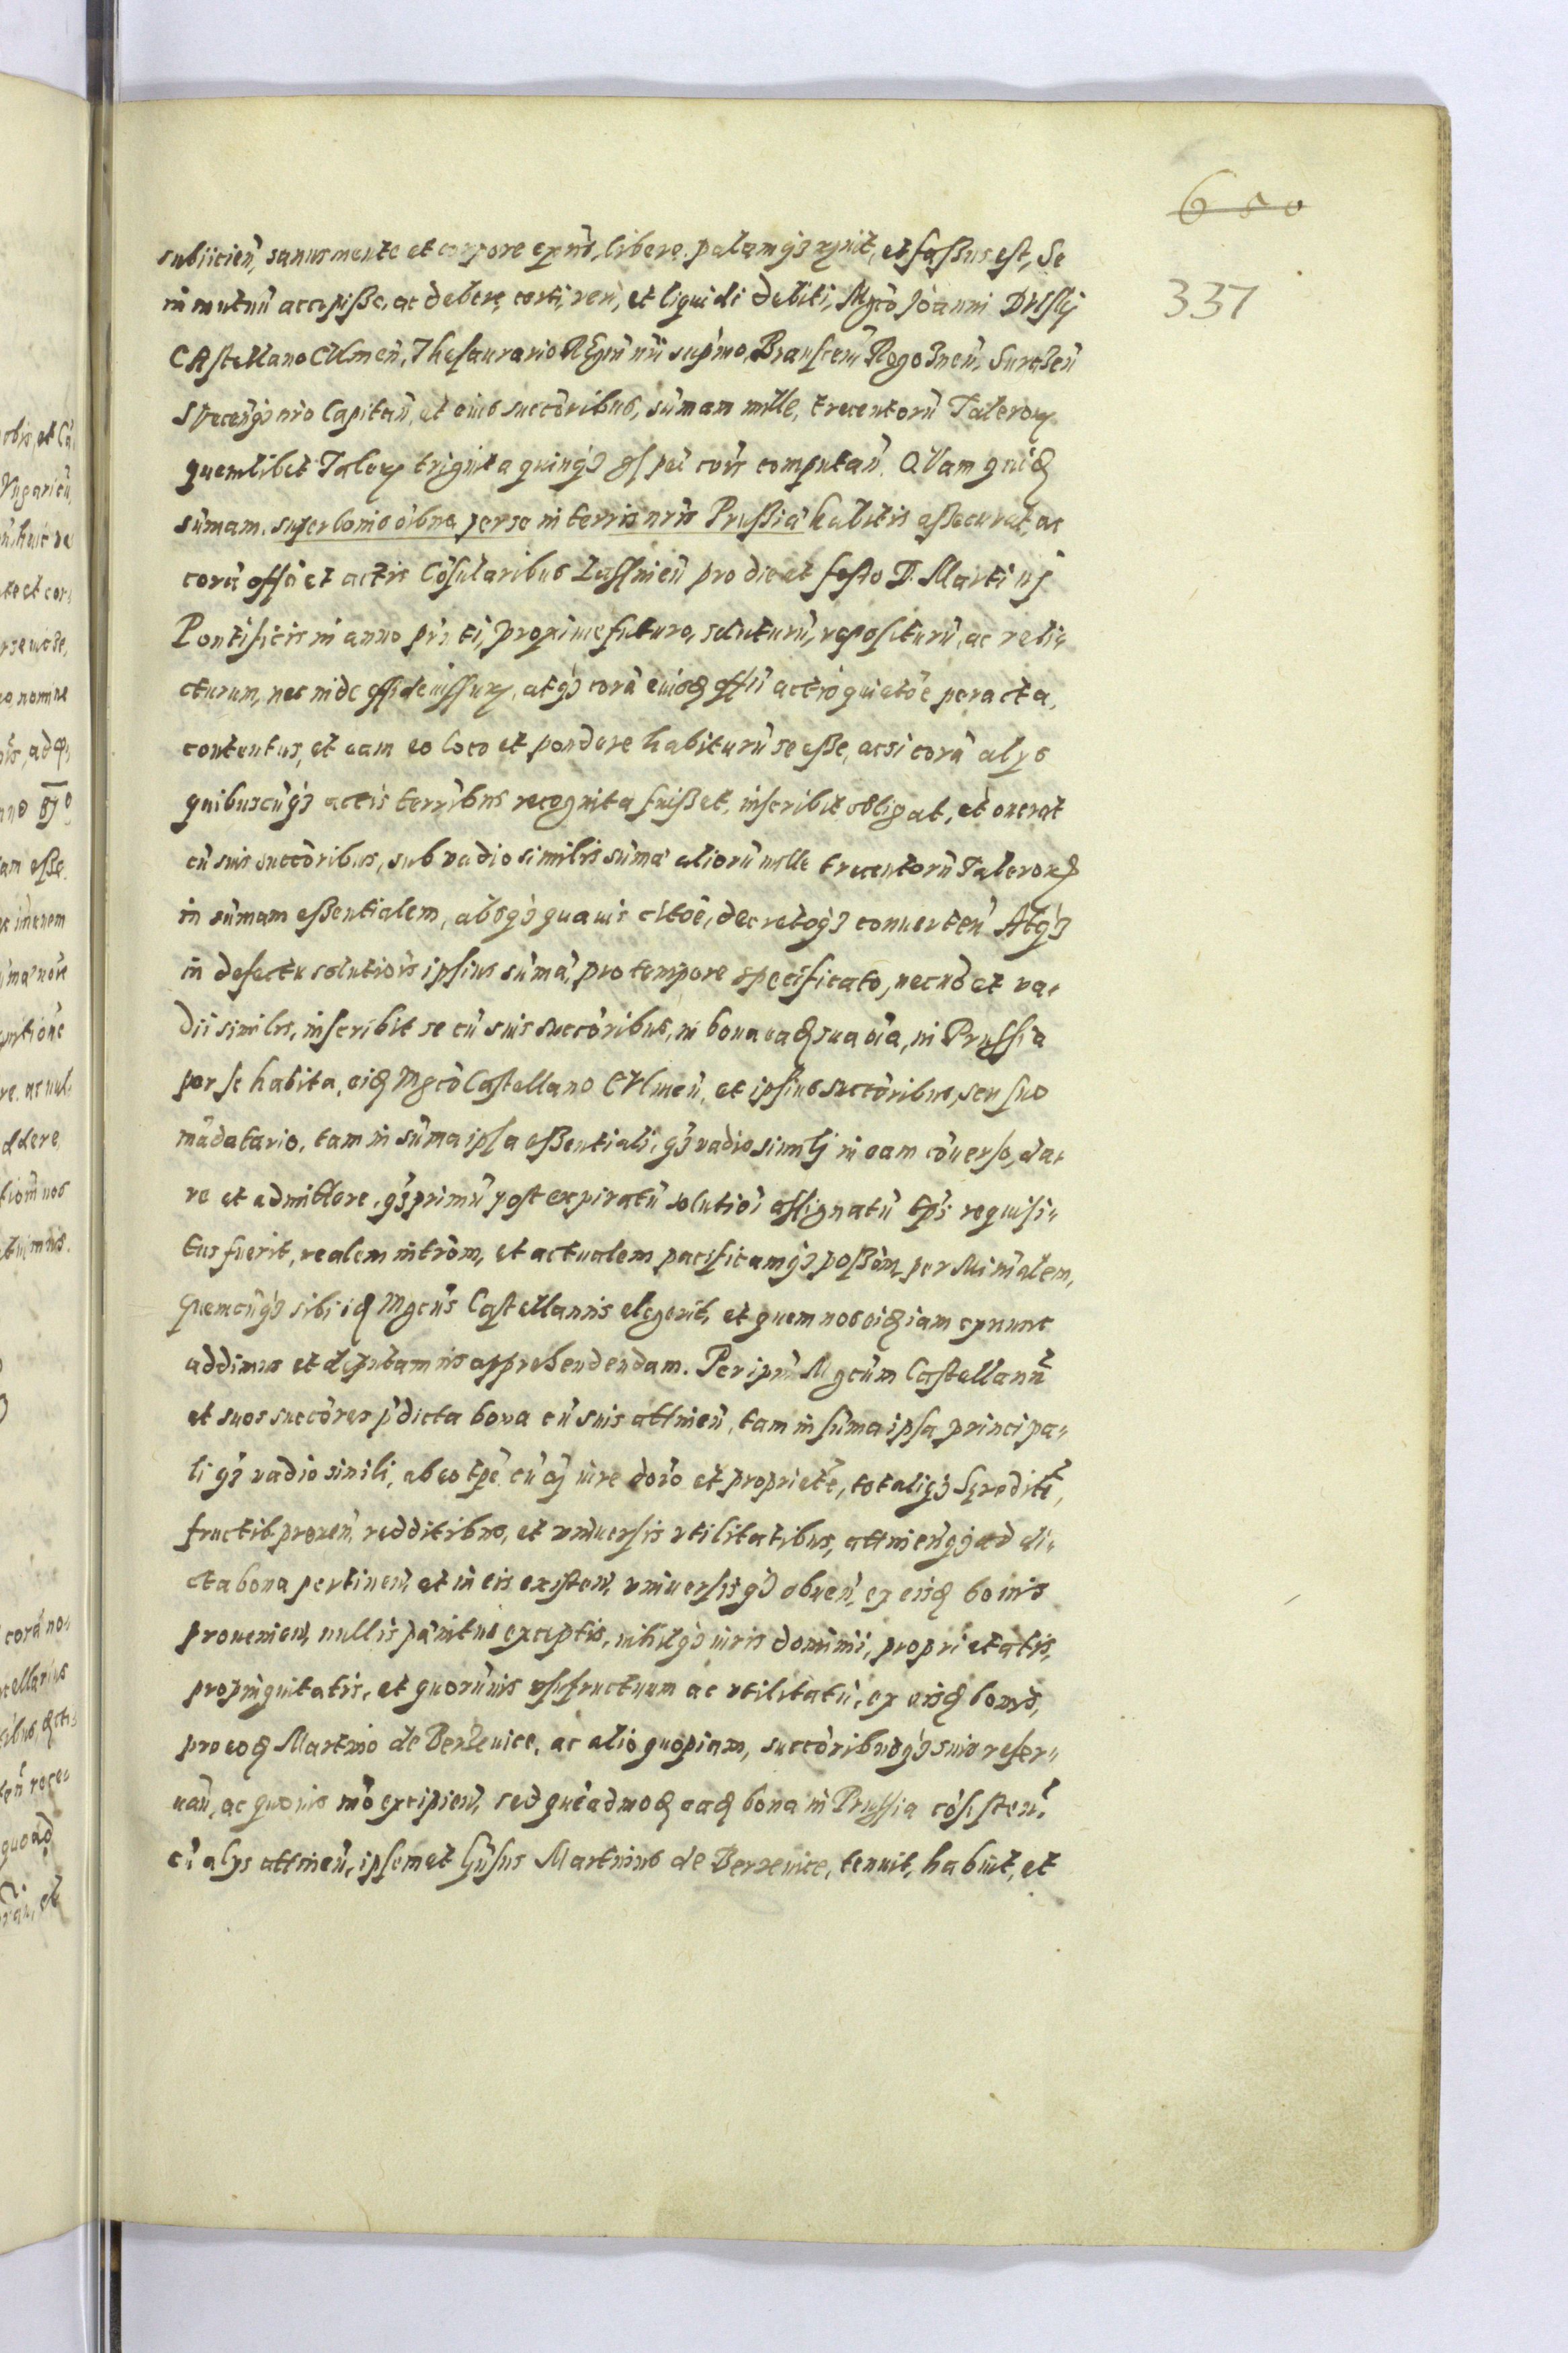 650
337
subiicien̄, sanus mente et corpore exn̄s, libere palamq3 rg̃nit, et fassus est, Se
in mutuū accepisse, ac debere, certi, veri, et liquidi debiti, Mgcō Joanni Dulskj
CAstellano CUlmeñ, Thesaurario REgni nr̄i supr̄mo, Branscen̄, Rogoznen̄, Surazen̄
SVecen̄q3 nr̄o Capitan̄, et eius succōribus, sūmam mille, trecentorū Taleroꝝ
quemlibet Taleꝝ triginta quinq3 gs̄ pol̄ cōi computan̄. QVam quidē
sūmam, super bonis oībus per se in terris nr̄is Prussiæ habitis assecurat, ac
corā offō et actis Cōsularibus Lassinen̄ pro die et festo D. Martinj
Pontificis in anno pn̄ti, proxime futuro, soluturū, repositurū, ac reli-
cturum, nec inde discessurꝝ, atq3 corā eiusdē offii actis quietōe peracta,
contentus, et eam eo loco et pondere habiturū se esse, acsi corā alys
quibuscūq3 actis terr̄ibus recognita fuisset, inscribit obligat, et onerat
cū suis succōribus, sub vadio similis sūmæ aliorū mille trecentorū Taleroꝝ
in sūmam essentialem, absq3 quavis citōe, decretoq3 converten̄ Atq3
in defectu solutiōis ipsius sūmæ, pro tempore specificato, necnō et va-
dii similis, inscribit se cū suis succōribus, in bona eadē sua oīa, in Prussia
per se habita, eidē Mgcō Castellano CUlmen̄, et ipsius succōribus, seu suo
mādatario, tam in sūma ipsa essentiali, q3 vadio similj in eam cōverso, da-
re et admittere, q3 primū post expiratū solutiōi assignatū tp̄s requisi-
tus fuerit, realem intrōm, et actualem pacificamq3 possōm, per Miñalem,
quemcūq3 sibi idē Mgcūs Castellanus elegerit, et quem nos eidē iam exnunc
addimus et deputamus apprehendendam. Per ipm̄ Mgcūm Castellanū
et suos succōres p̄dicta bona cū suis attinen̄, tam in sūma ipsa principa-
li q3 vadio simili, ab eo tp̄e cū oī iure dōio et proprietē, totaliq3 hæreditē,
fructib. proven̄, redditibus, et universis utilitatibus, attinen̄q3 ad di-
cta bona pertinen̄, et in eis existen̄, universisq3 obven̄, ex eisdē bonis
provenien̄, nullis pænitus exceptis, nihilq3 iuris dominii, proprietatis,
propinquitatis, et quorūvis ususfructuum ac utilitatū, ex eisdē bonis,
pro eodē Martino de Berzevice, ac alio quopiam, succōribusq3 suis reser-
van̄, ac quovis mō excipien̄, sed quēadmodē eadē bona in Prussia cōsisten̄,
cū alys attinen̄, ipsemet Gn̄sus Martinus de Berzevice, tenuit, habuit, et